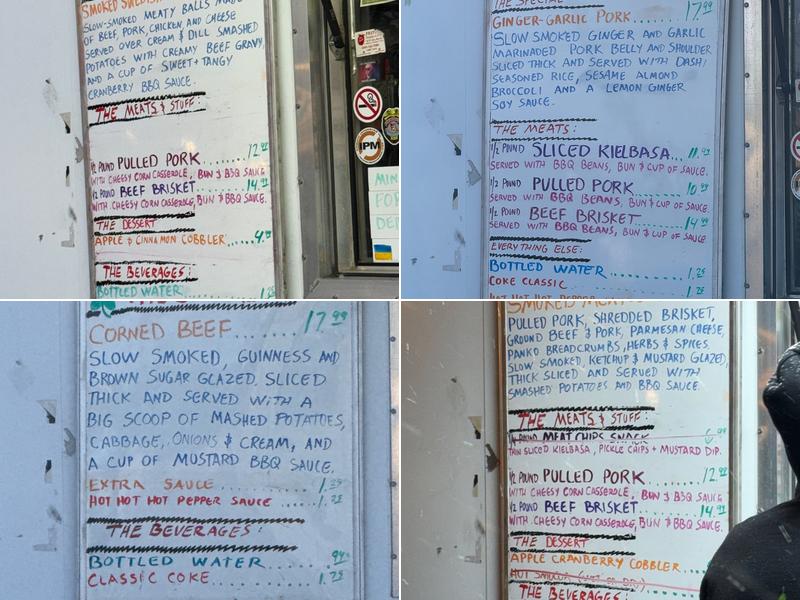 SMOKED SWEDISH
SLOW-SMOKED MEATY BALLS MADE
OF BEEF, PORK, CHICKEN, AND CHEESE
SERVED OVER CREAM & DILL SMASHED
POTATOES WITH CREAMY BEEF GRAVY,
AND A CUP OF SWEET + TANGY
CRANBERRY BBQ SAUCE.
THE MEATS & STUFF:
1/2 POUND PULLED PORK 12.99
WITH CHEESY CORN CASSEROLE, BUN & BBQ SAUCE
1/2 POUND BEEF BRISKET 14.99
WITH CHEESY CORN CASSEROLE, BUN & BBQ SAUCE.
THE DESSERT
APPLE & CINNAMON COBBLER 4.99
THE BEVERAGES:
BOTTLED WATER 1.25
IPM
MIN
FO
DE
THE SPECIAL
GINGER-GARLIC PORK 17.99
SLOW SMOKED GINGER AND GARLIC
MARINADED PORK BELLY AND SHOULDER
SLICED THICK AND SERVED WITH DASHI
SEASONED RICE, SESAME ALMOND
BROCCOLI AND A LEMON GINGER
SOY SAUCE.
THE MEATS:
1/2 POUND SLICED KIELBASA 11.99
SERVED WITH BBQ BEANS, BUN & CUP OF SAUCE.
1/2 POUND PULLED PORK 10.99
SERVED WITH BBQ BEANS, BUN & CUP OF SAUCE.
1/2 POUND BEEF BRISKET 14.99
SERVED WITH BBQ BEANS, BUN & CUP OF SAUCE
EVERYTHING ELSE:
BOTTLED WATER 1.25
COKE CLASSIC 1.25
HOT HOT HOT PEPPER
CORNED BEEF 17.99
SLOW SMOKED, GUINNESS AND
BROWN SUGAR GLAZED. SLICED
THICK AND SERVED WITH A
BIG SCOOP OF MASHED POTATOES,
CABBAGE, ONIONS & CREAM, AND
A CUP OF MUSTARD BBQ SAUCE.
EXTRA SAUCE 1.25
HOT HOT HOT PEPPER SAUCE 1.25
THE BEVERAGES:
BOTTLED WATER .94
CLASSIC COKE 1.25
SMOKED MEAT
PULLED PORK, SHREDDED BRISKET,
GROUND BEEF & PORK, PARMESAN CHEESE,
PANKO BREADCRUMBS, HERBS & SPICES.
SLOW SMOKED, KETCHUP & MUSTARD GLAZED,
THICK SLICED AND SERVED WITH
SMASHED POTATOES AND BBQ SAUCE.
THE MEATS & STUFF:
1/4 POUND MEAT CHIPS SNACK 6.99
THIN SLICED KIELBASA, PICKLE CHIPS + MUSTARD DIP.
1/2 POUND PULLED PORK 12.99
WITH CHEESY CORN CASSEROLE, BUN & BBQ SAUCE
1/2 POUND BEEF BRISKET 14.99
WITH CHEESY CORN CASSEROLE, BUN & BBQ SAUCE.
THE DESSERT
APPLE CRANBERRY COBBLER
THE BEVERAGES: